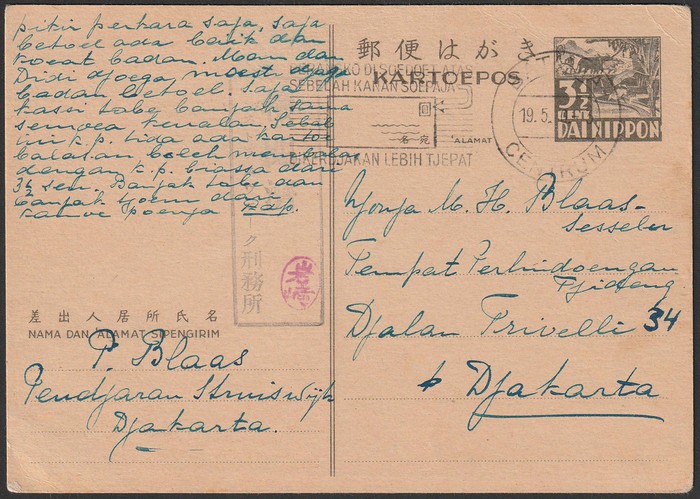 pikir perkara saja, saja
betoel ada baik dan
koeat badan. Mam dan
Didi djoega, moest djaga
badan betoel. Saja
kasi tabe banjak sama
semoea kenalan. Sebab
ini k.p. tida ada kartoe
balasan, boleh membalas
dengan k.p. biassa dari
3½ sen. Banjak tabe dan
banjak tjoem dari
kamoe poenja Pap.
郵便はがき
KARTOEPOS
DISOEDOET ATAS
SEBELAH KANAN SOEPAJA
回
名宛
ALAMAT
DIKERDJAKAN LEBIH TJEPAT
19.5.
CENTRUM
3½
CENT
DAI NIPPON
ク刑務所
差出人居所氏名
NAMA DAN ALAMAT SIPENGIRIM
P. Blaas
Pendjaran Struiswijk
Djakarta.
Njonja M. H. Blaas-
Sesseler
Tempat Perlindoengan
Tjideng
Djalan Trivelli 34
Djakarta